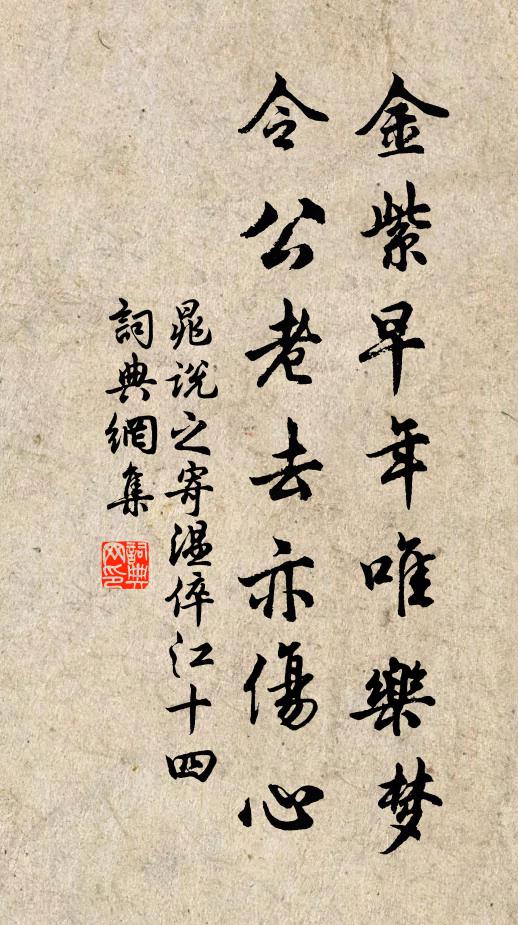 金紫早年唯樂梦
令公老去亦傷心
晁説之寄温倅江十四
詞典網集
詞典
网印